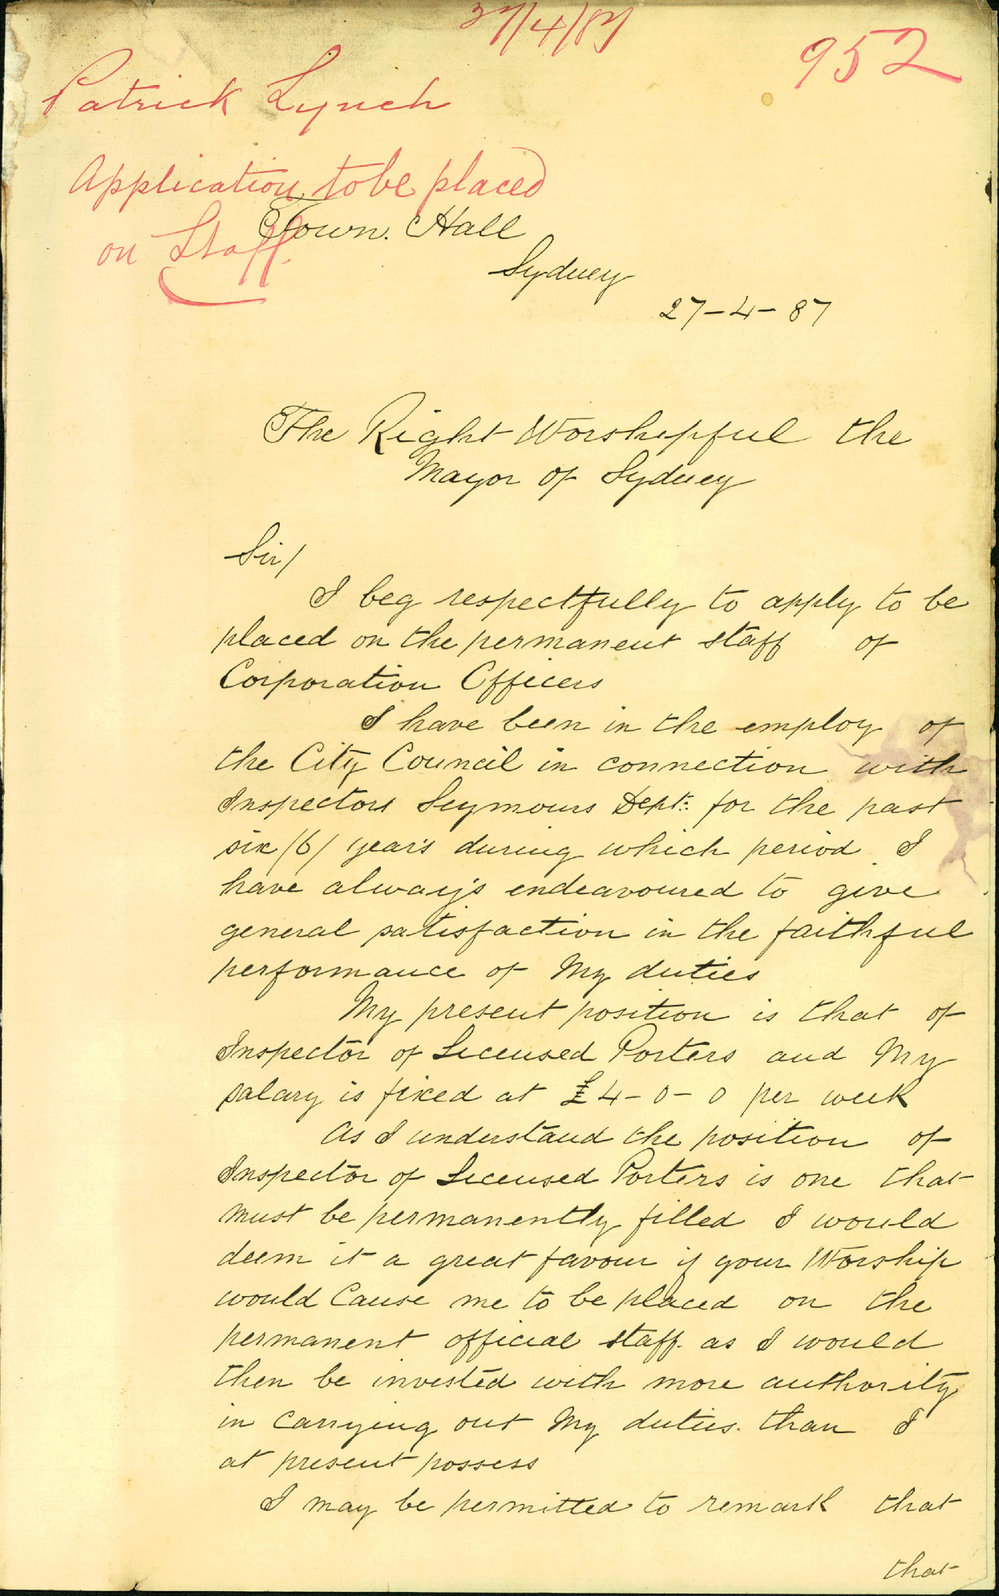 27/4/87
952
Patrick Lynch
Application to be placed
on Staff.
Town. Hall
Sydney
27-4-87
The Right Worshipful the
Mayor of Sydney
Sir/
I beg respectfully to apply to be
placed on the permanent staff of
Corporation Officers
I have been in the employ of
the City Council in connection with
Inspectors Seymours Dept: for the past
six /6/ years during which period I
have always endeavoured to give
general satisfaction in the faithful
performance of My duties
My present position is that of
Inspector of Licensed Porters and My
salary is fixed at £4-0-0 per week
As I understand the position of
Inspector of Licensed Porters is one that
must be permanently filled I would
deem it a great favour if your Worship
would Cause me to be placed on the
permanent official staff. as I would
then be invested with more authority
in carrying out My duties. than I
at present possess
I may be permitted to remark that
that